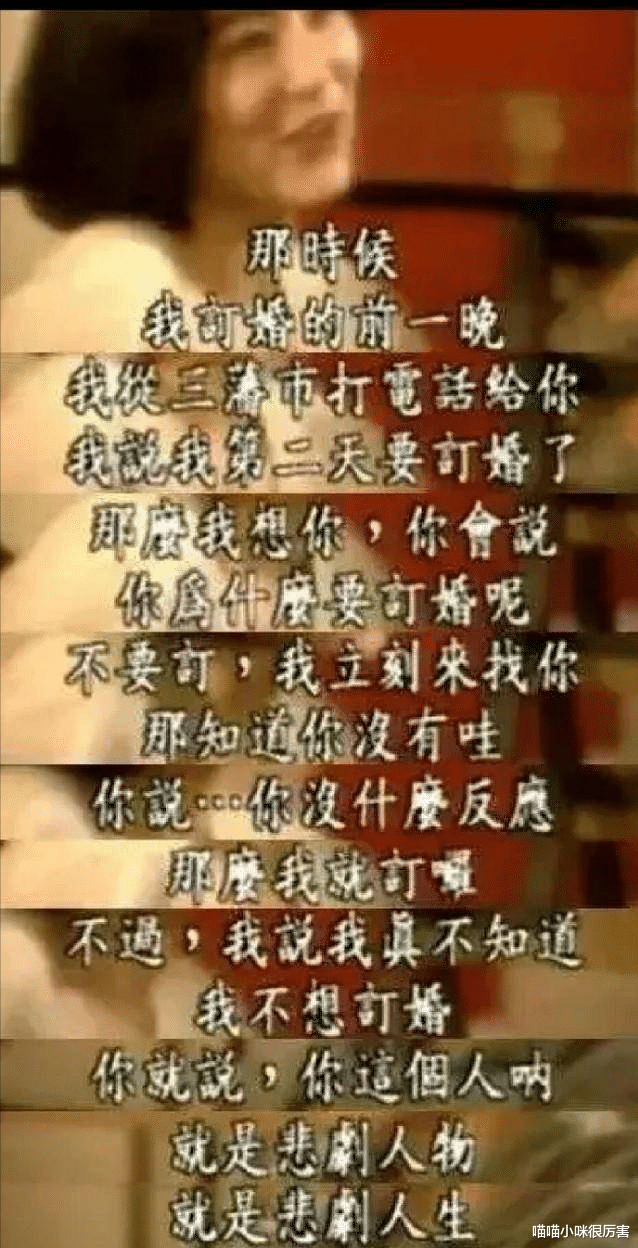 那時候
我訂婚的前一晚
我從三藩市打電話給你
我說我第二天要訂婚了
那麼我想你，你會說
你為什麼要訂婚呢
不要訂，我立刻來找你
那知道你沒有哇
你說…你沒什麼反應
那麼我就訂囉
不過，我說我真不知道
我不想訂婚
你就說，你這個人吶
就是悲劇人物
就是悲劇人生
喵喵小咪很厉害